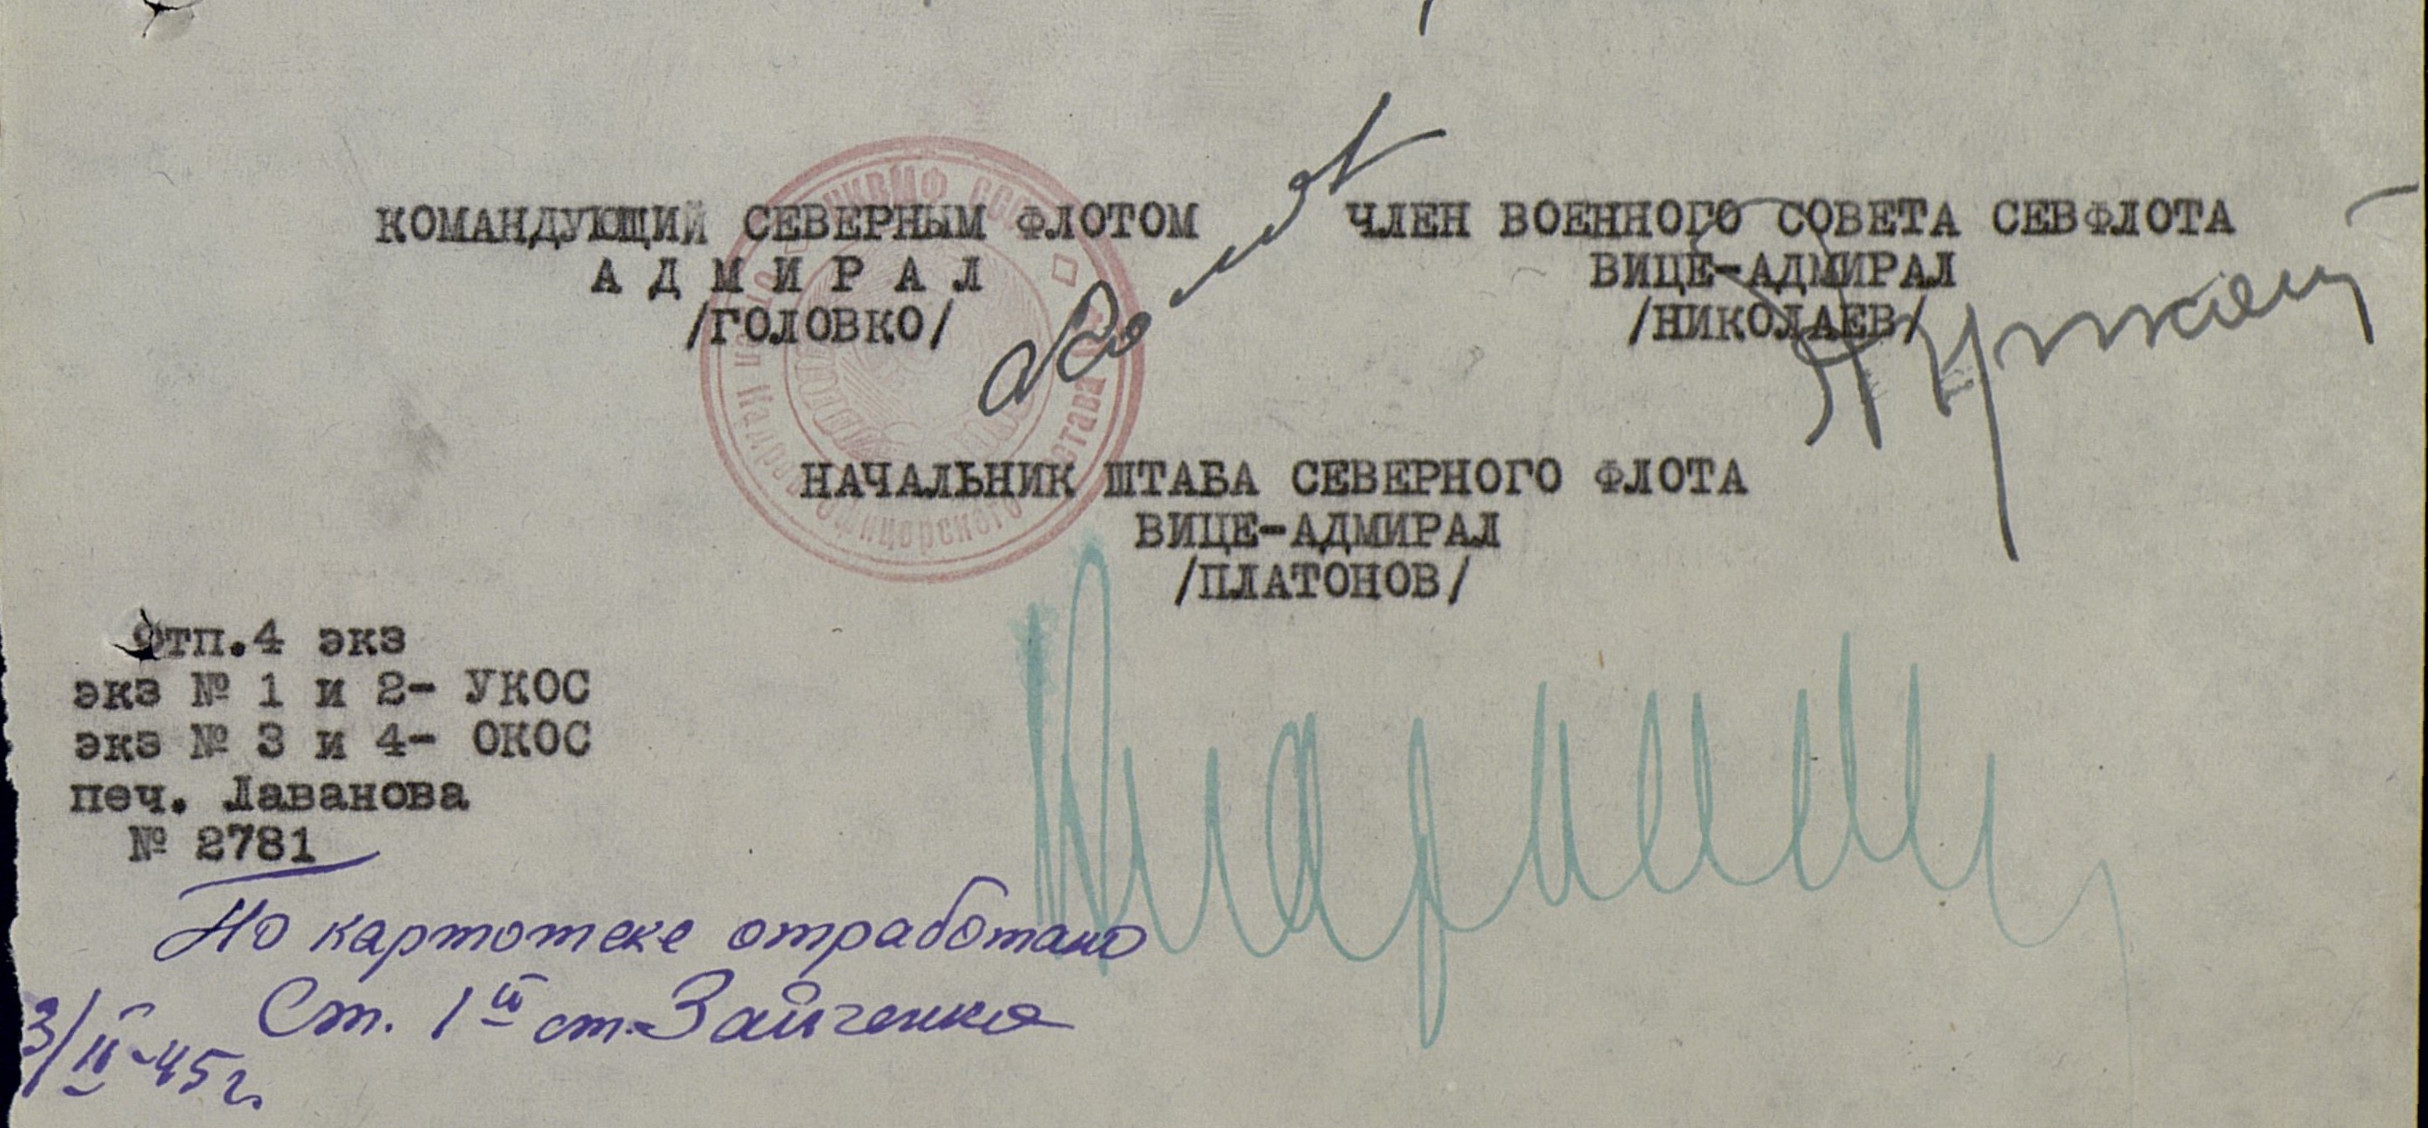 КОМАНДУЮЩИЙ СЕВЕРНЫМ ФЛОТОМ
А Д М И Р А Л
/ГОЛОВКО/
ЧЛЕН ВОЕННОГО СОВЕТА СЕВФЛОТА
ВИЦЕ-АДМИРАЛ
/НИКОЛАЕВ/
НКВМФ СССР
Кадров офицерского состава
НАЧАЛЬНИК ШТАБА СЕВЕРНОГО ФЛОТА
ВИЦЕ-АДМИРАЛ
/ПЛАТОНОВ/
Отп.4 экз
экз № 1 и 2- УКОС
экз № 3 и 4- ОКОС
печ. Лаванова
№ 2781
По картотеке отработано
Ст. 1й ст. Зайченко
3/II-45г.